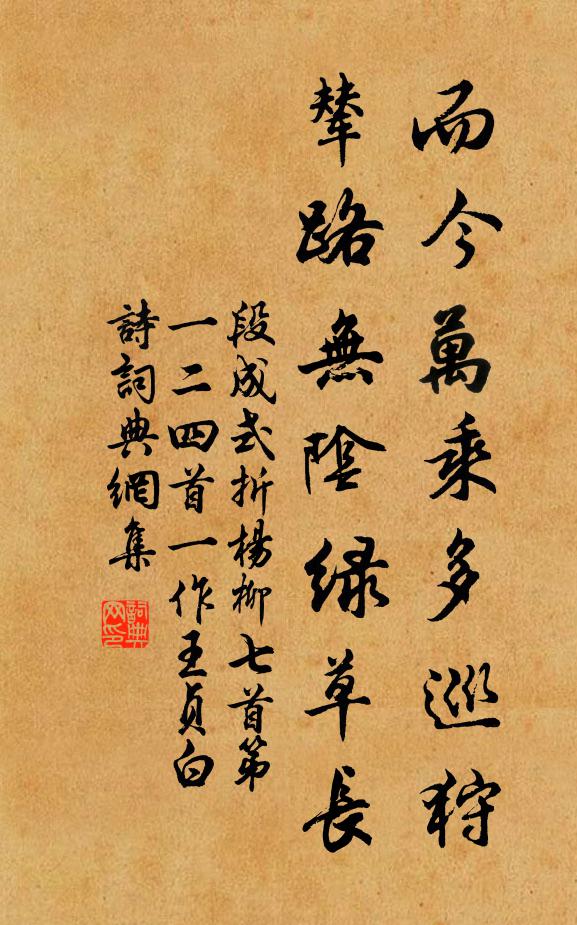 而今萬乘多巡狩
輦路無陰绿草長
段成式折楊柳七首第
一二四首一作王贞白
詩詞典網集
詞典网印